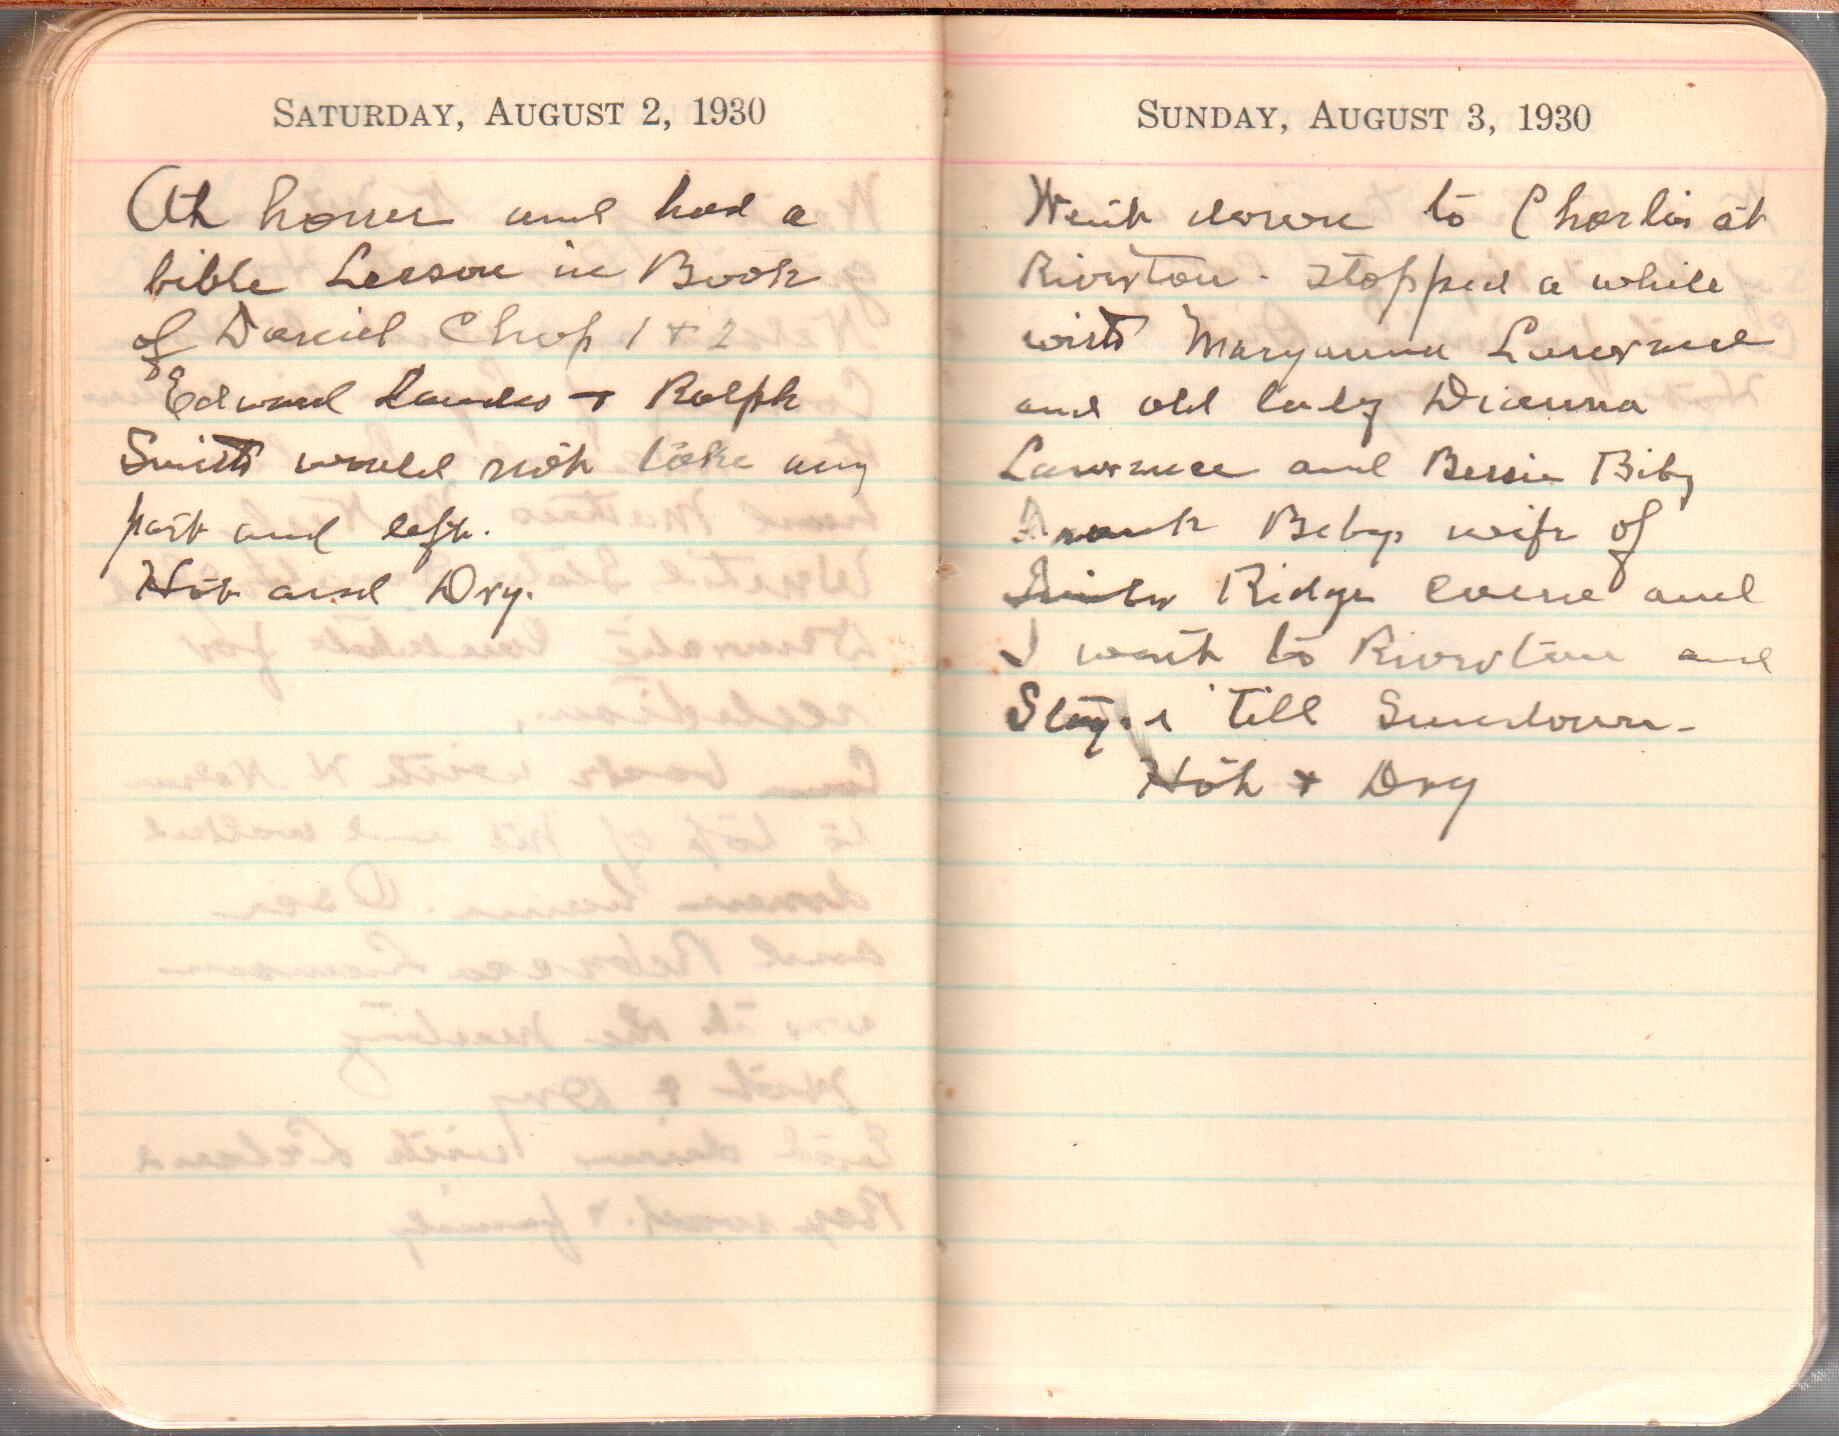 SATURDAY, AUGUST 2, 1930
At home and had a
bible Lesson in Book
of Daniel Chap 1 + 2
Edward Landes + Ralph
Smith would not take any
part and left.
Hot and Dry.
SUNDAY, AUGUST 3, 1930
Went down to Charlis at
Riverton - Stopped a while
with Maryanna Lawrence
and old lady Dianna
Lawrence and Bessie Biby
Frank Bibys wife of
Ridge came and
I went to Riverton and
Stayed till Sundown -
Hot + Dry